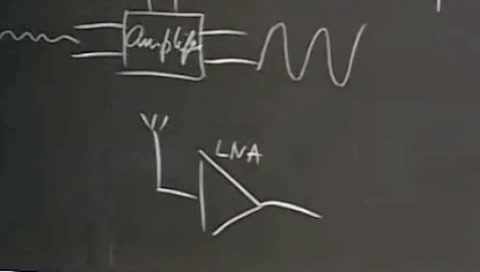 Amplifier
LNA